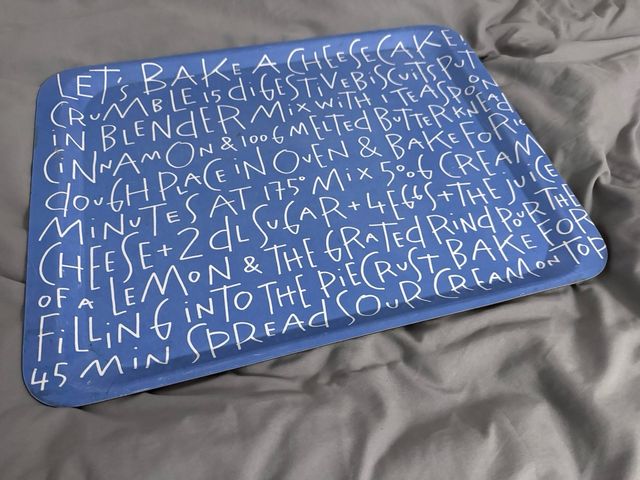 LET'S BAKE A CHEESECAKE.
CRUMBLE 15 DIGESTIVE BISCUITS PUT
IN BLENDER MIX WITH 1 TEASPOON
CINNAMON & 100G MELTED BUTTER KNEAD
DOUGH PLACE IN OVEN & BAKE FOR 10
MINUTES AT 175° MIX 500G CREAM
CHEESE + 2 DL SUGAR + 4 EGGS + THE JUICE
OF A LEMON & THE GRATED RIND POUR THE
FILLING INTO THE PIECRUST BAKE FOR
45 MIN SPREAD SOUR CREAM ON TOP